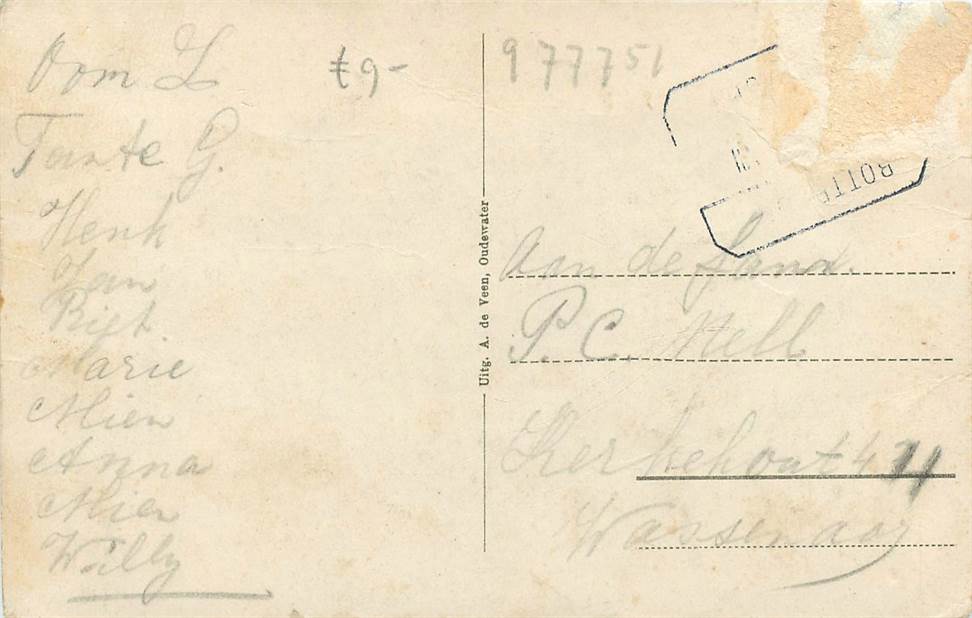 Oom L
Tante G.
Henk
Jan
Riet
Marie
Mien
Anna
Mien
Willy
ŧ 9-
977751
ROTTE
Uitg. A. de Veen, Oudewater
Aan de Fam.
P. C. Mell
Kerkehout 411
Wassenaar